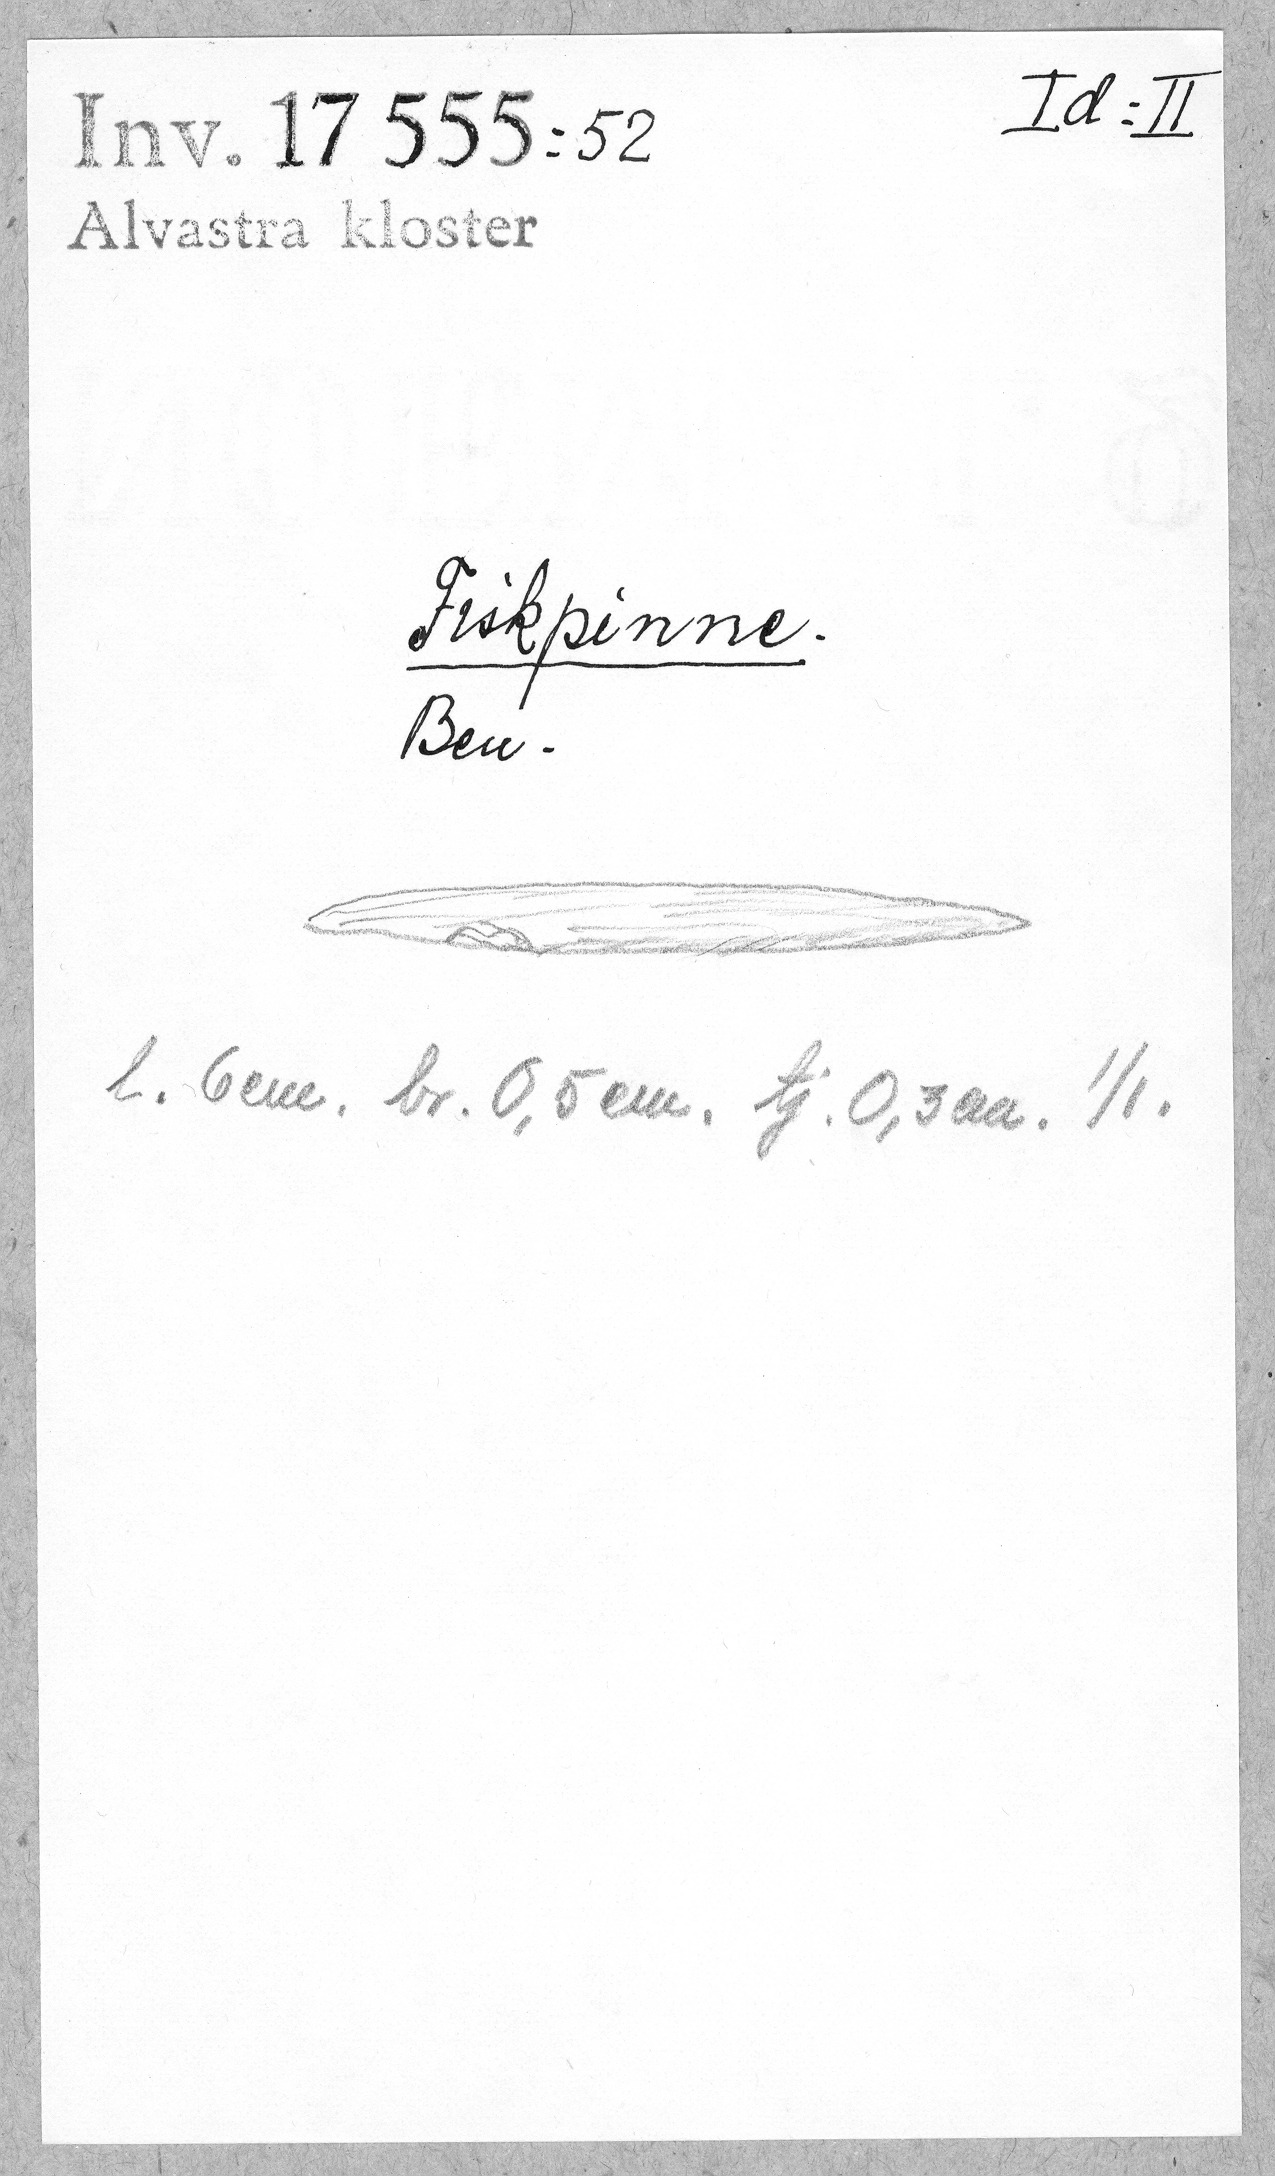 Inv. 17 555:52
Id:II
Alvastra kloster
Fiskpinne.
Ben.
l. 6cm. br. 0,5cm. tj. 0,3cm. 1/1.